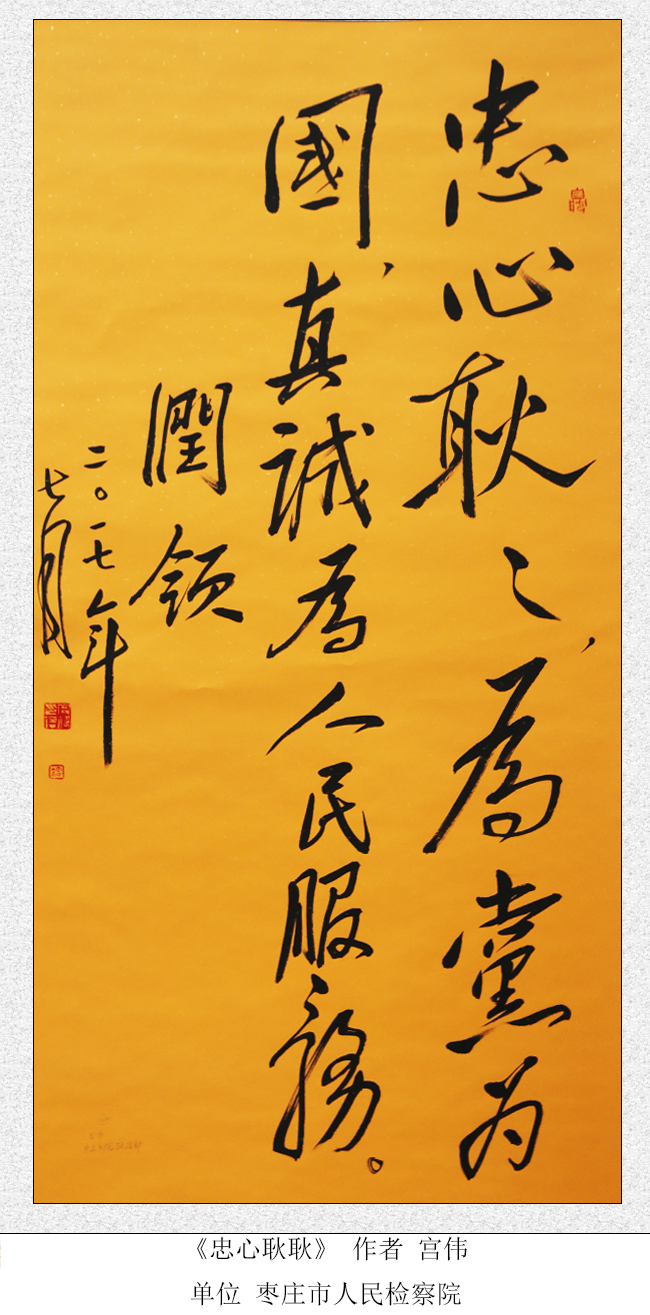 忠心耿〻，為黨为
國，真誠為人民服務。
潤领
二〇一七年
七月
《忠心耿耿》 作者 宫伟
单位 枣庄市人民检察院